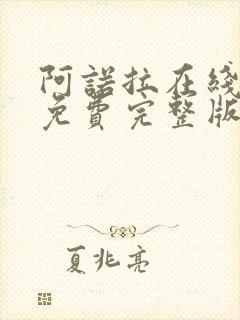 阿諾拉在綫
免費完整版
夏兆亮